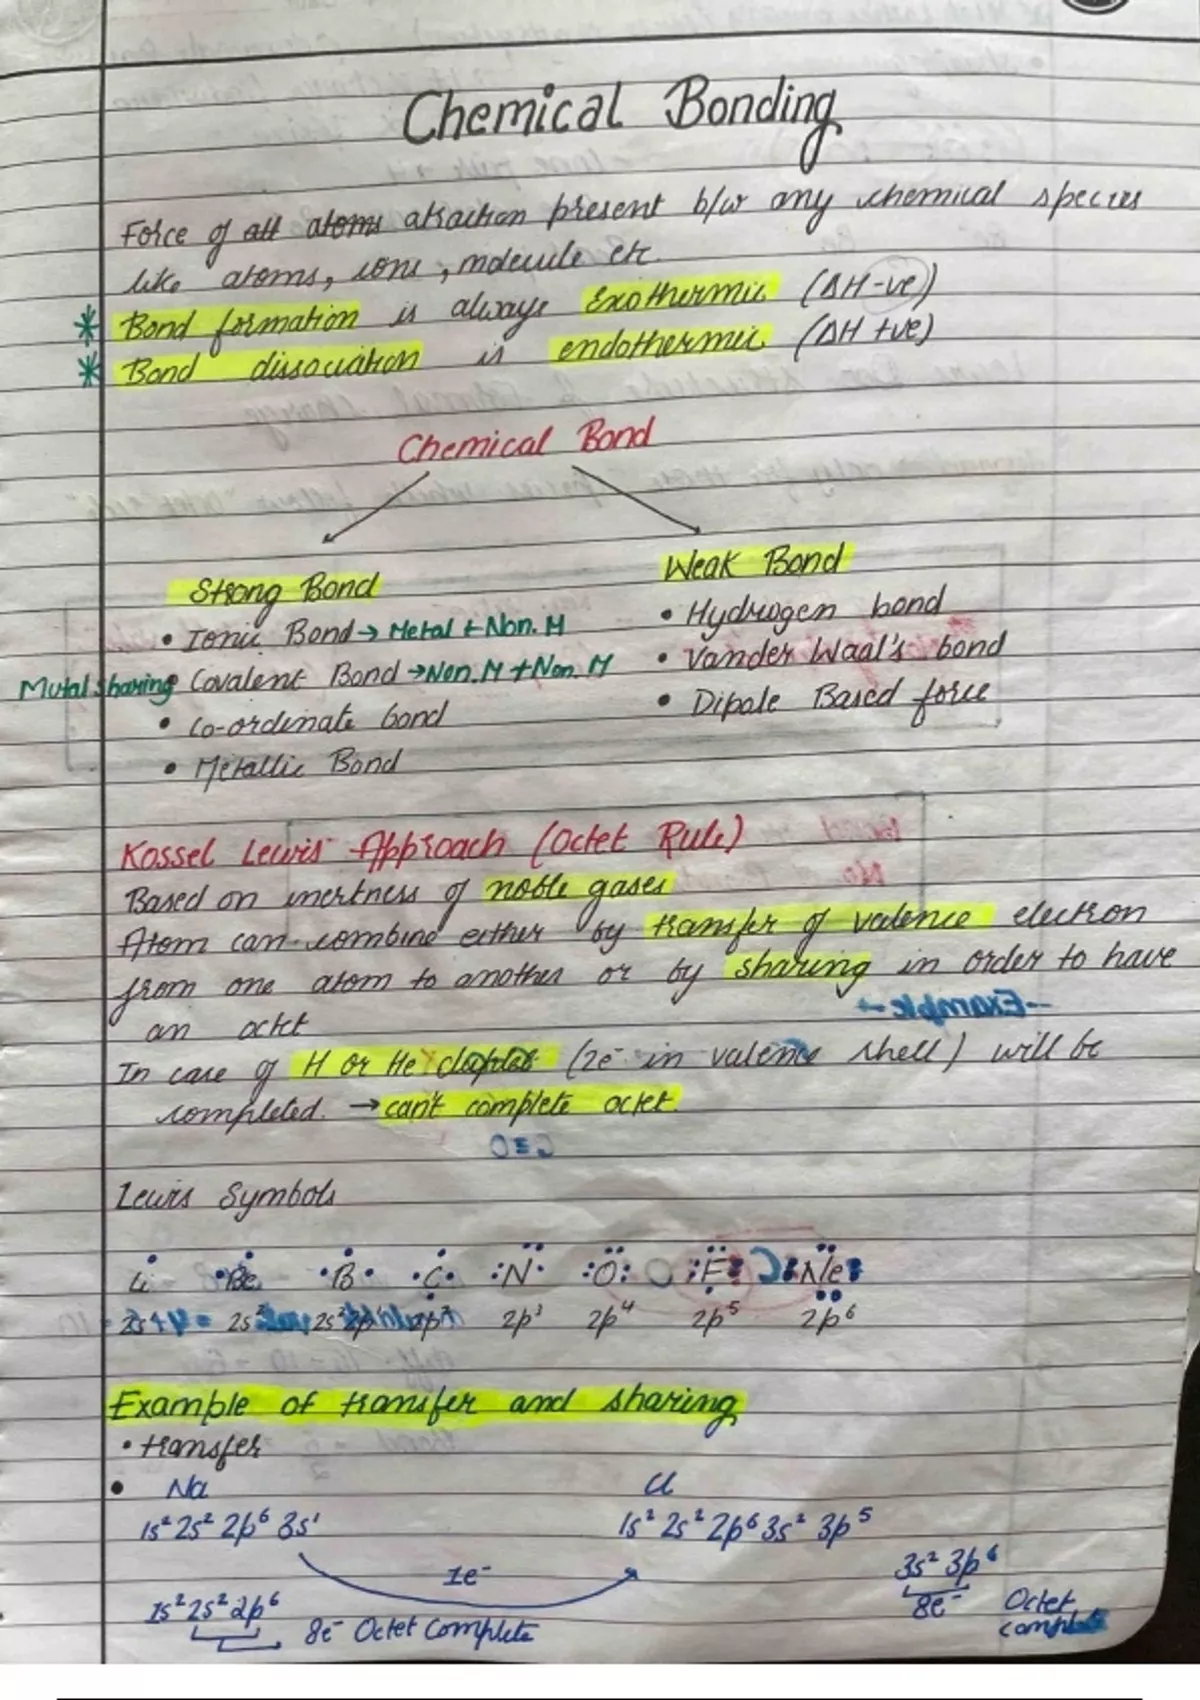 Chemical Bonding
Force of all atoms attraction present b/w any chemical species
like atoms, ions, molecule etc.
* Bond formation is always Exothermic (ΔH-ve)
* Bond dissociation is endothermic (ΔH +ve)
Chemical Bond
Strong Bond
• Ionic Bond → Metal + Non. M
Mutal sharing • Covalent Bond → Non. M + Non. M
• Co-ordinate bond
• Metallic Bond
Weak Bond
• Hydrogen bond
• Vander Waal's bond
• Dipole Based force
Kossel Lewis Approach (Octet Rule)
Based on inertness of noble gases
Atom can combine either by transfer of valence electron
from one atom to another or by sharing in order to have
an octet
In case of H or He (2e⁻ in valence shell) will be
completed. → can't complete octet.
Lewis Symbols
Li Be B C N O F Ne
2s 2s² 2s² 2p¹ 2p² 2p³ 2p⁴ 2p⁵ 2p⁶
Example of transfer and sharing
• transfer
• Na Cl
1s² 2s² 2p⁶ 3s¹ 1s² 2s² 2p⁶ 3s² 3p⁵
1e⁻ 3s² 3p⁶
1s² 2s² 2p⁶ 8e⁻ Octet Complete
8e⁻ Octet complete